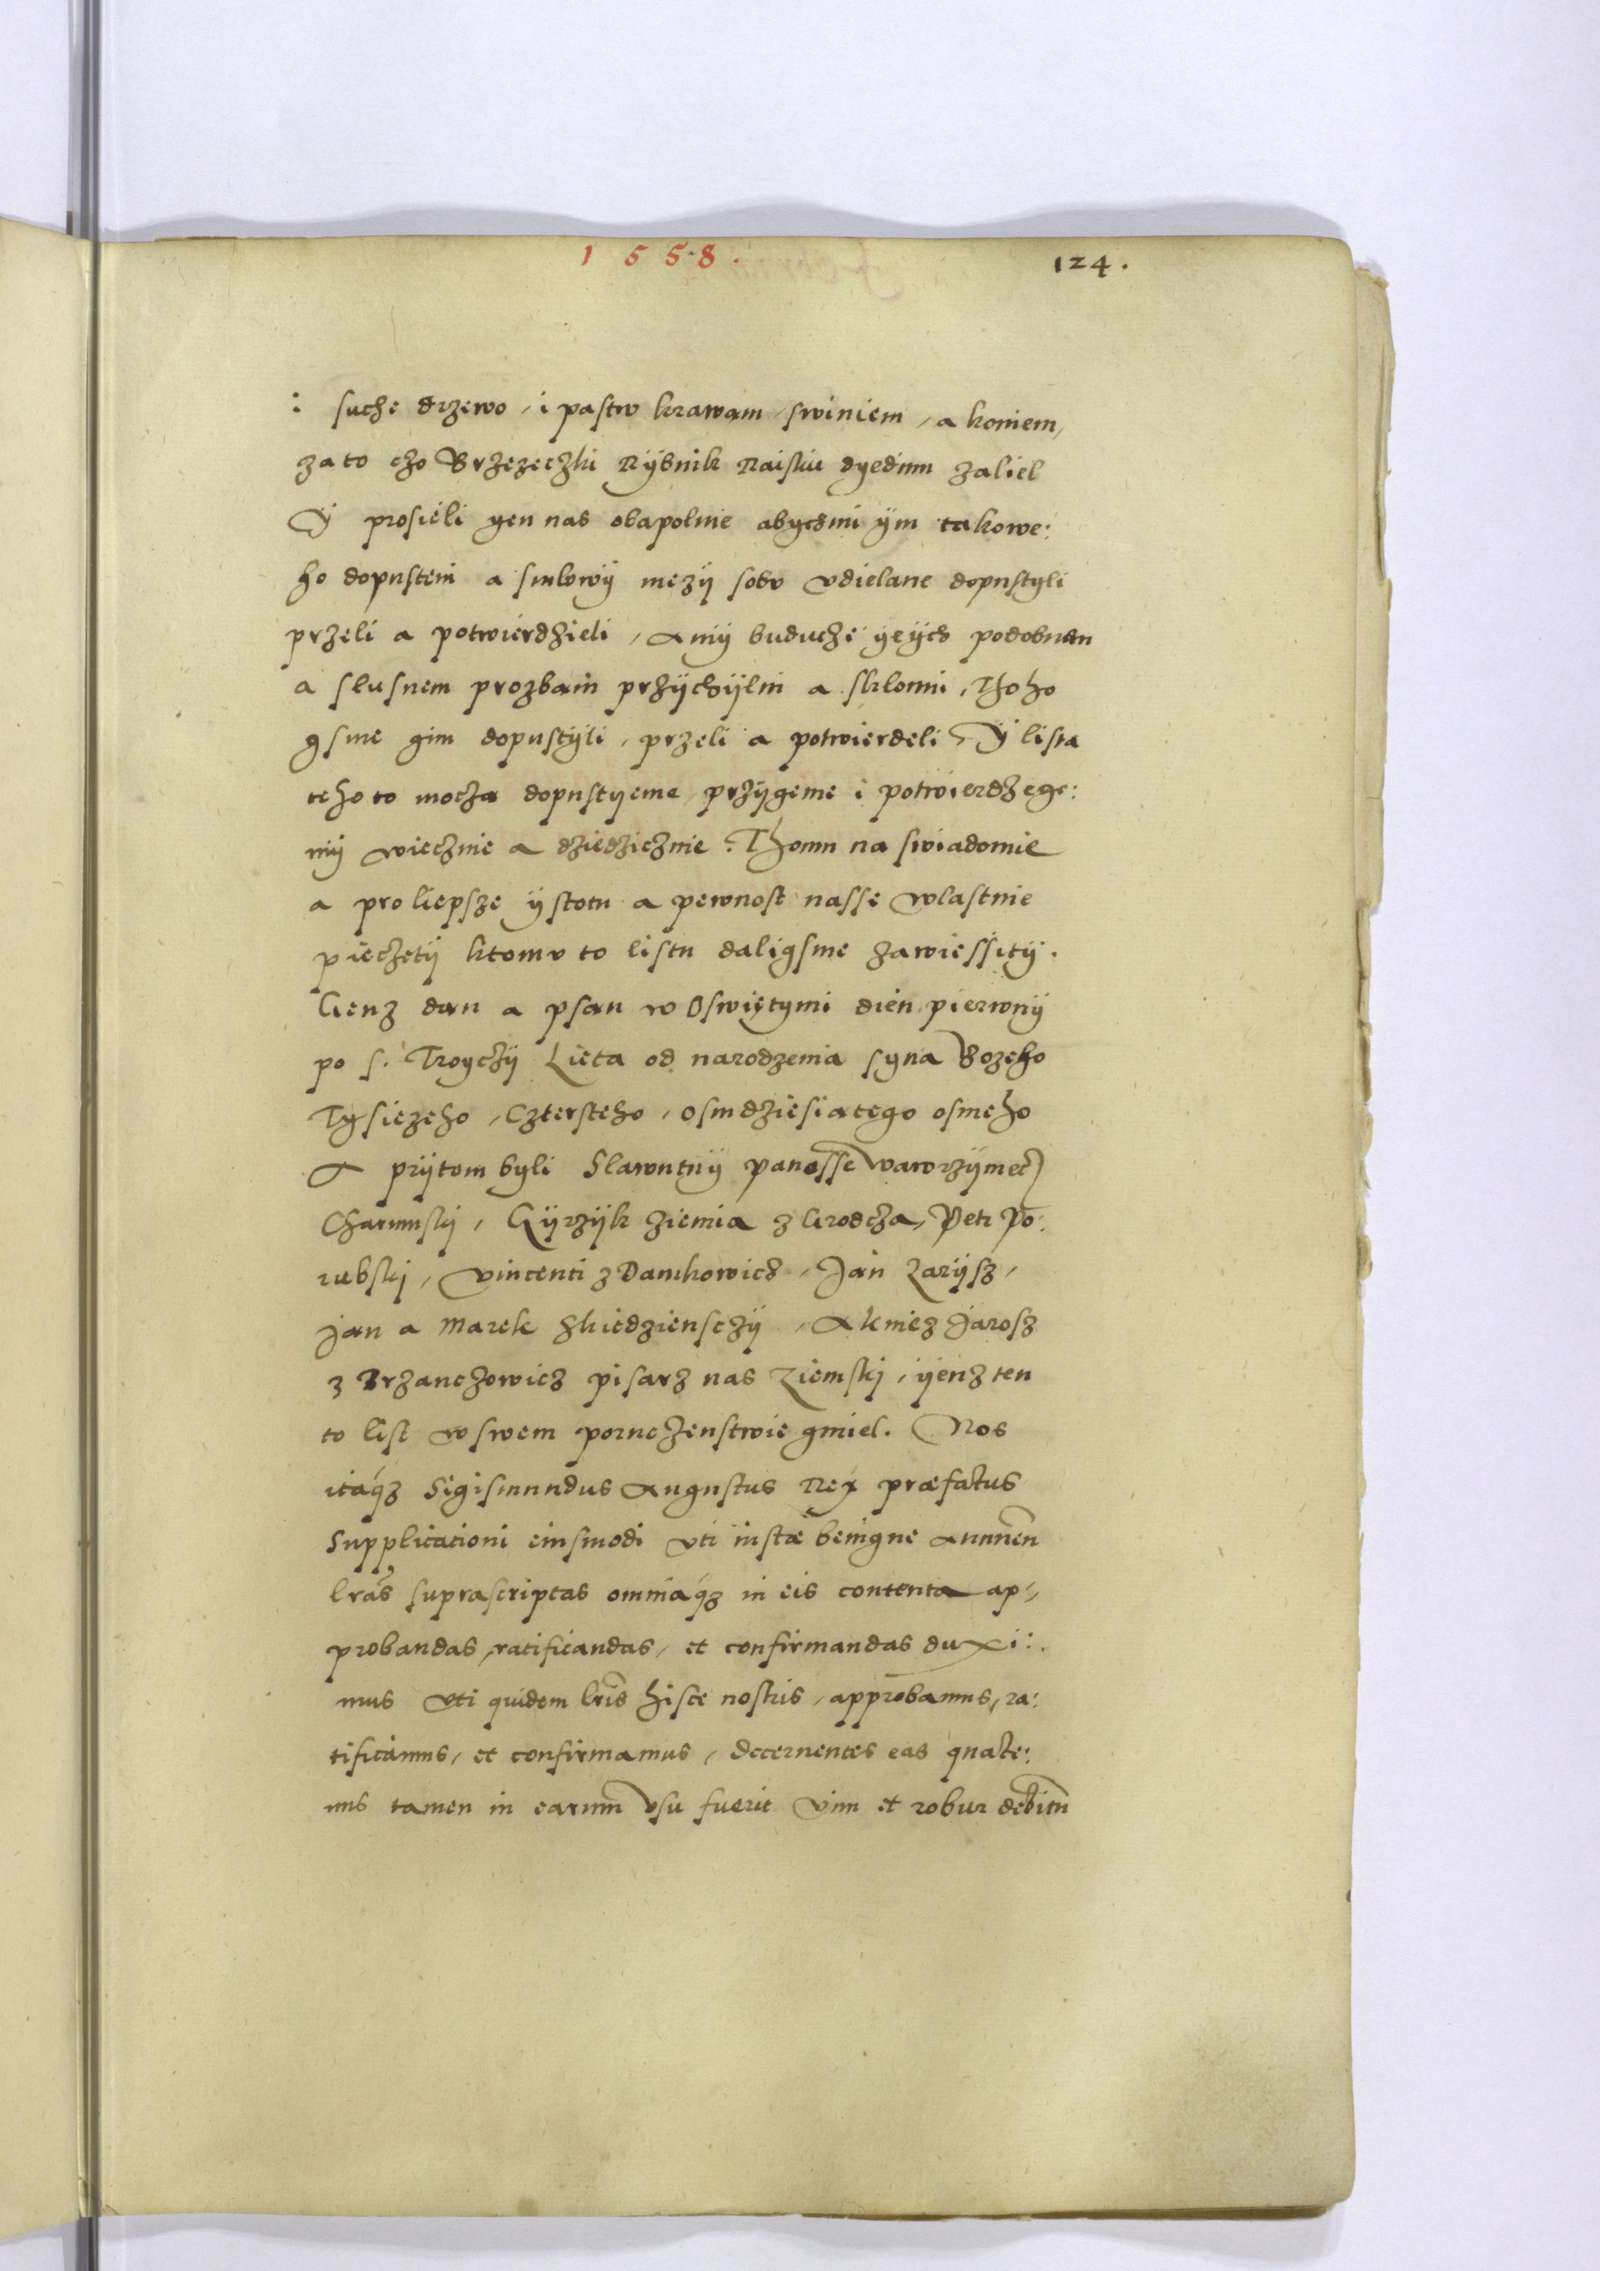 1558.
124.
i suche drzewo, i pastw krawam, swiniem, a koniem,
za to czo Brzezeczki Rybnik Raisku dyedinn zaliel
Y prosieli gen nas obapolnie abychmi ÿm takowe:
ho dopusteni a smlvwÿ mezÿ sobv vdielane dopustyli
przeli a potwierdzieli, A mÿ buduche ÿeÿch podobnem
a slusnem prozbam przÿchÿlni a sklonni, Thoho
gsme gim dopustÿli, przeli a potwierdeli, Y lista
teho to mocza dopustyeme, przÿgeme i potwierdzege:
mÿ wiecznie a dziedzicznie. Thomu na swiadomie
a pro liepsze ÿstotu a pewnost nasse wlastnie
piechetÿ ktomv to listu daligsme zawiessitÿ.
Genz dan a psan w Oswiętymi dien pierwnÿ
po s. Troyczÿ Lieta od narodzenia syna Bozeho
Tysiezeho, Cztersteho, osmdziesiatego osmeho
A prÿtom byli Slawutnÿ panosse Wawrzÿmecz
Charunskj, Gÿrzÿk ziemia z Grodcza, Petr Po:
rubskj, Vincenti z Dankowicz, Jan Zarÿsz,
Jan a Marek Skiedzienschÿ, A kniez Jarosz
z Brzanchowicz pisarz nas Ziemskj, ÿenz ten
to list w swem porucženstwie gmiel. Nos
itaq3 Sigismundus Augustus Rex præfatus
Supplicationi eiusmodi vti iustæ benigne Annuen
lras suprascriptas omniaq3 in eis contenta ap,,
probandas, ratificandas, et confirmandas duxi:.
mus vti quidem lris hisce nostris, approbamus, ra:
tificamus, et confirmamus, decernentes eas quate:
nus tamen in earum vsu fuerit Vim et robur debitū